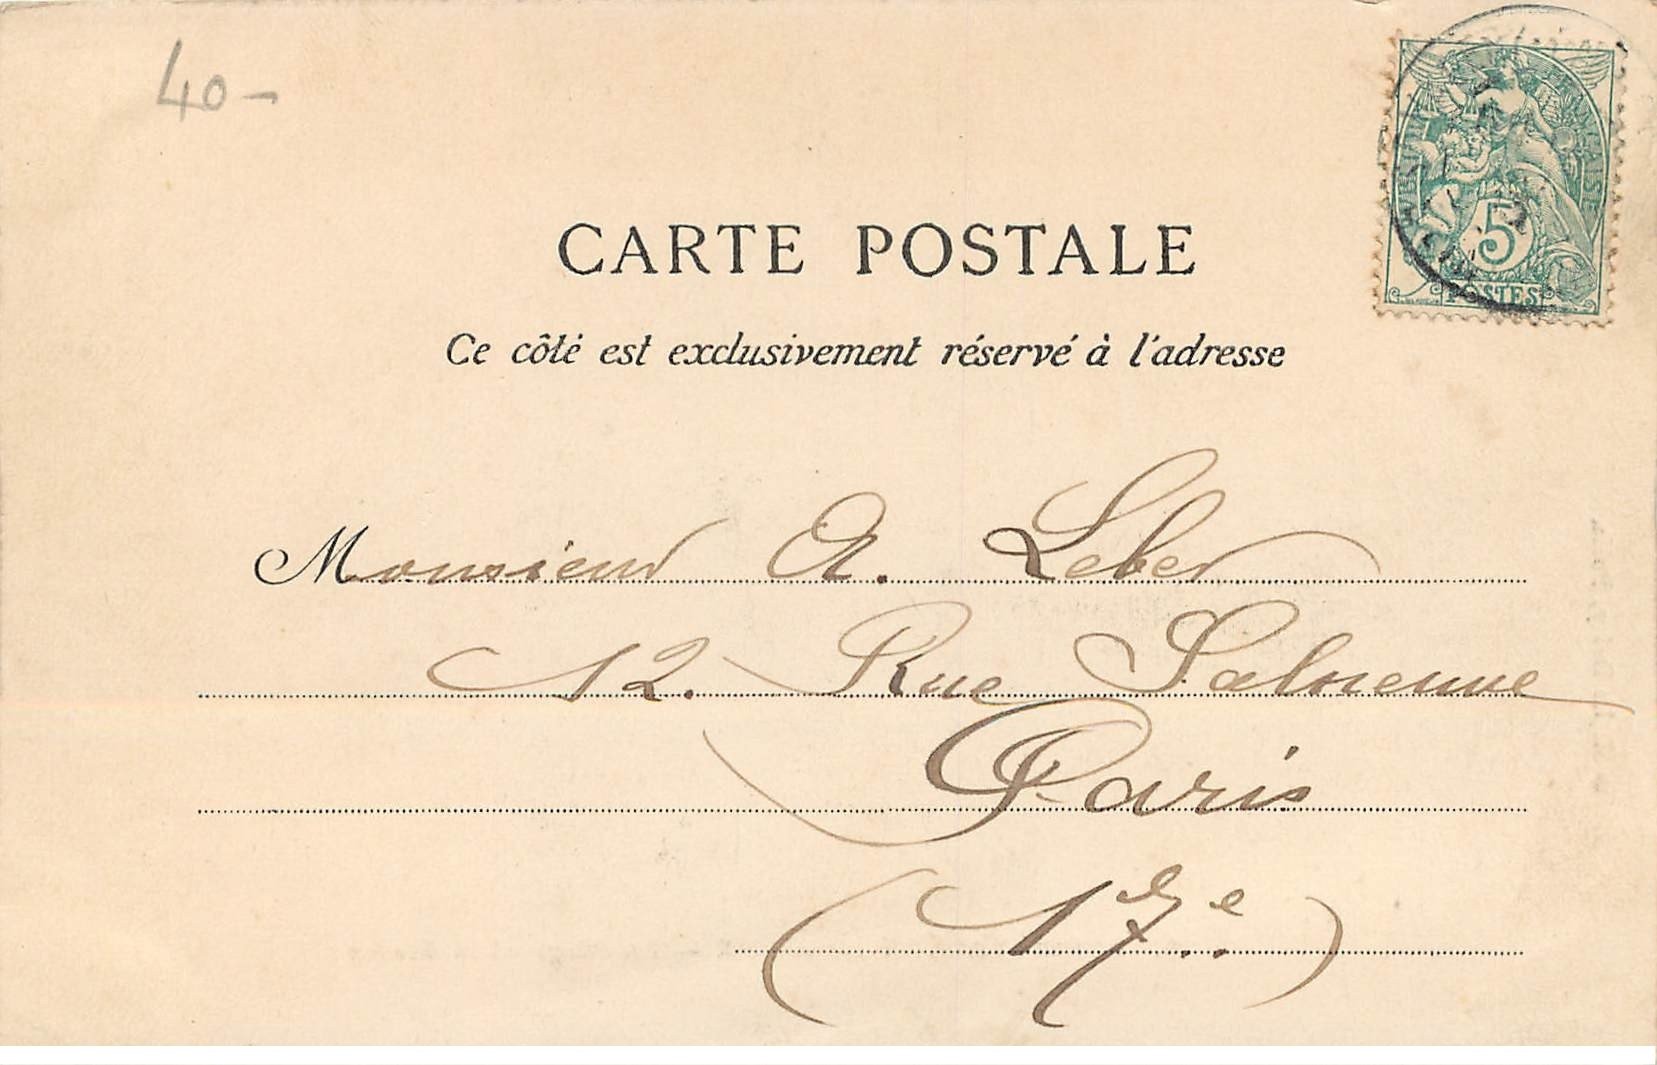 40-
5
POSTES
CARTE POSTALE
Ce côté est exclusivement réservé à l'adresse
Monsieur A. Leber
12. Rue Salneuve
Paris
(17e)